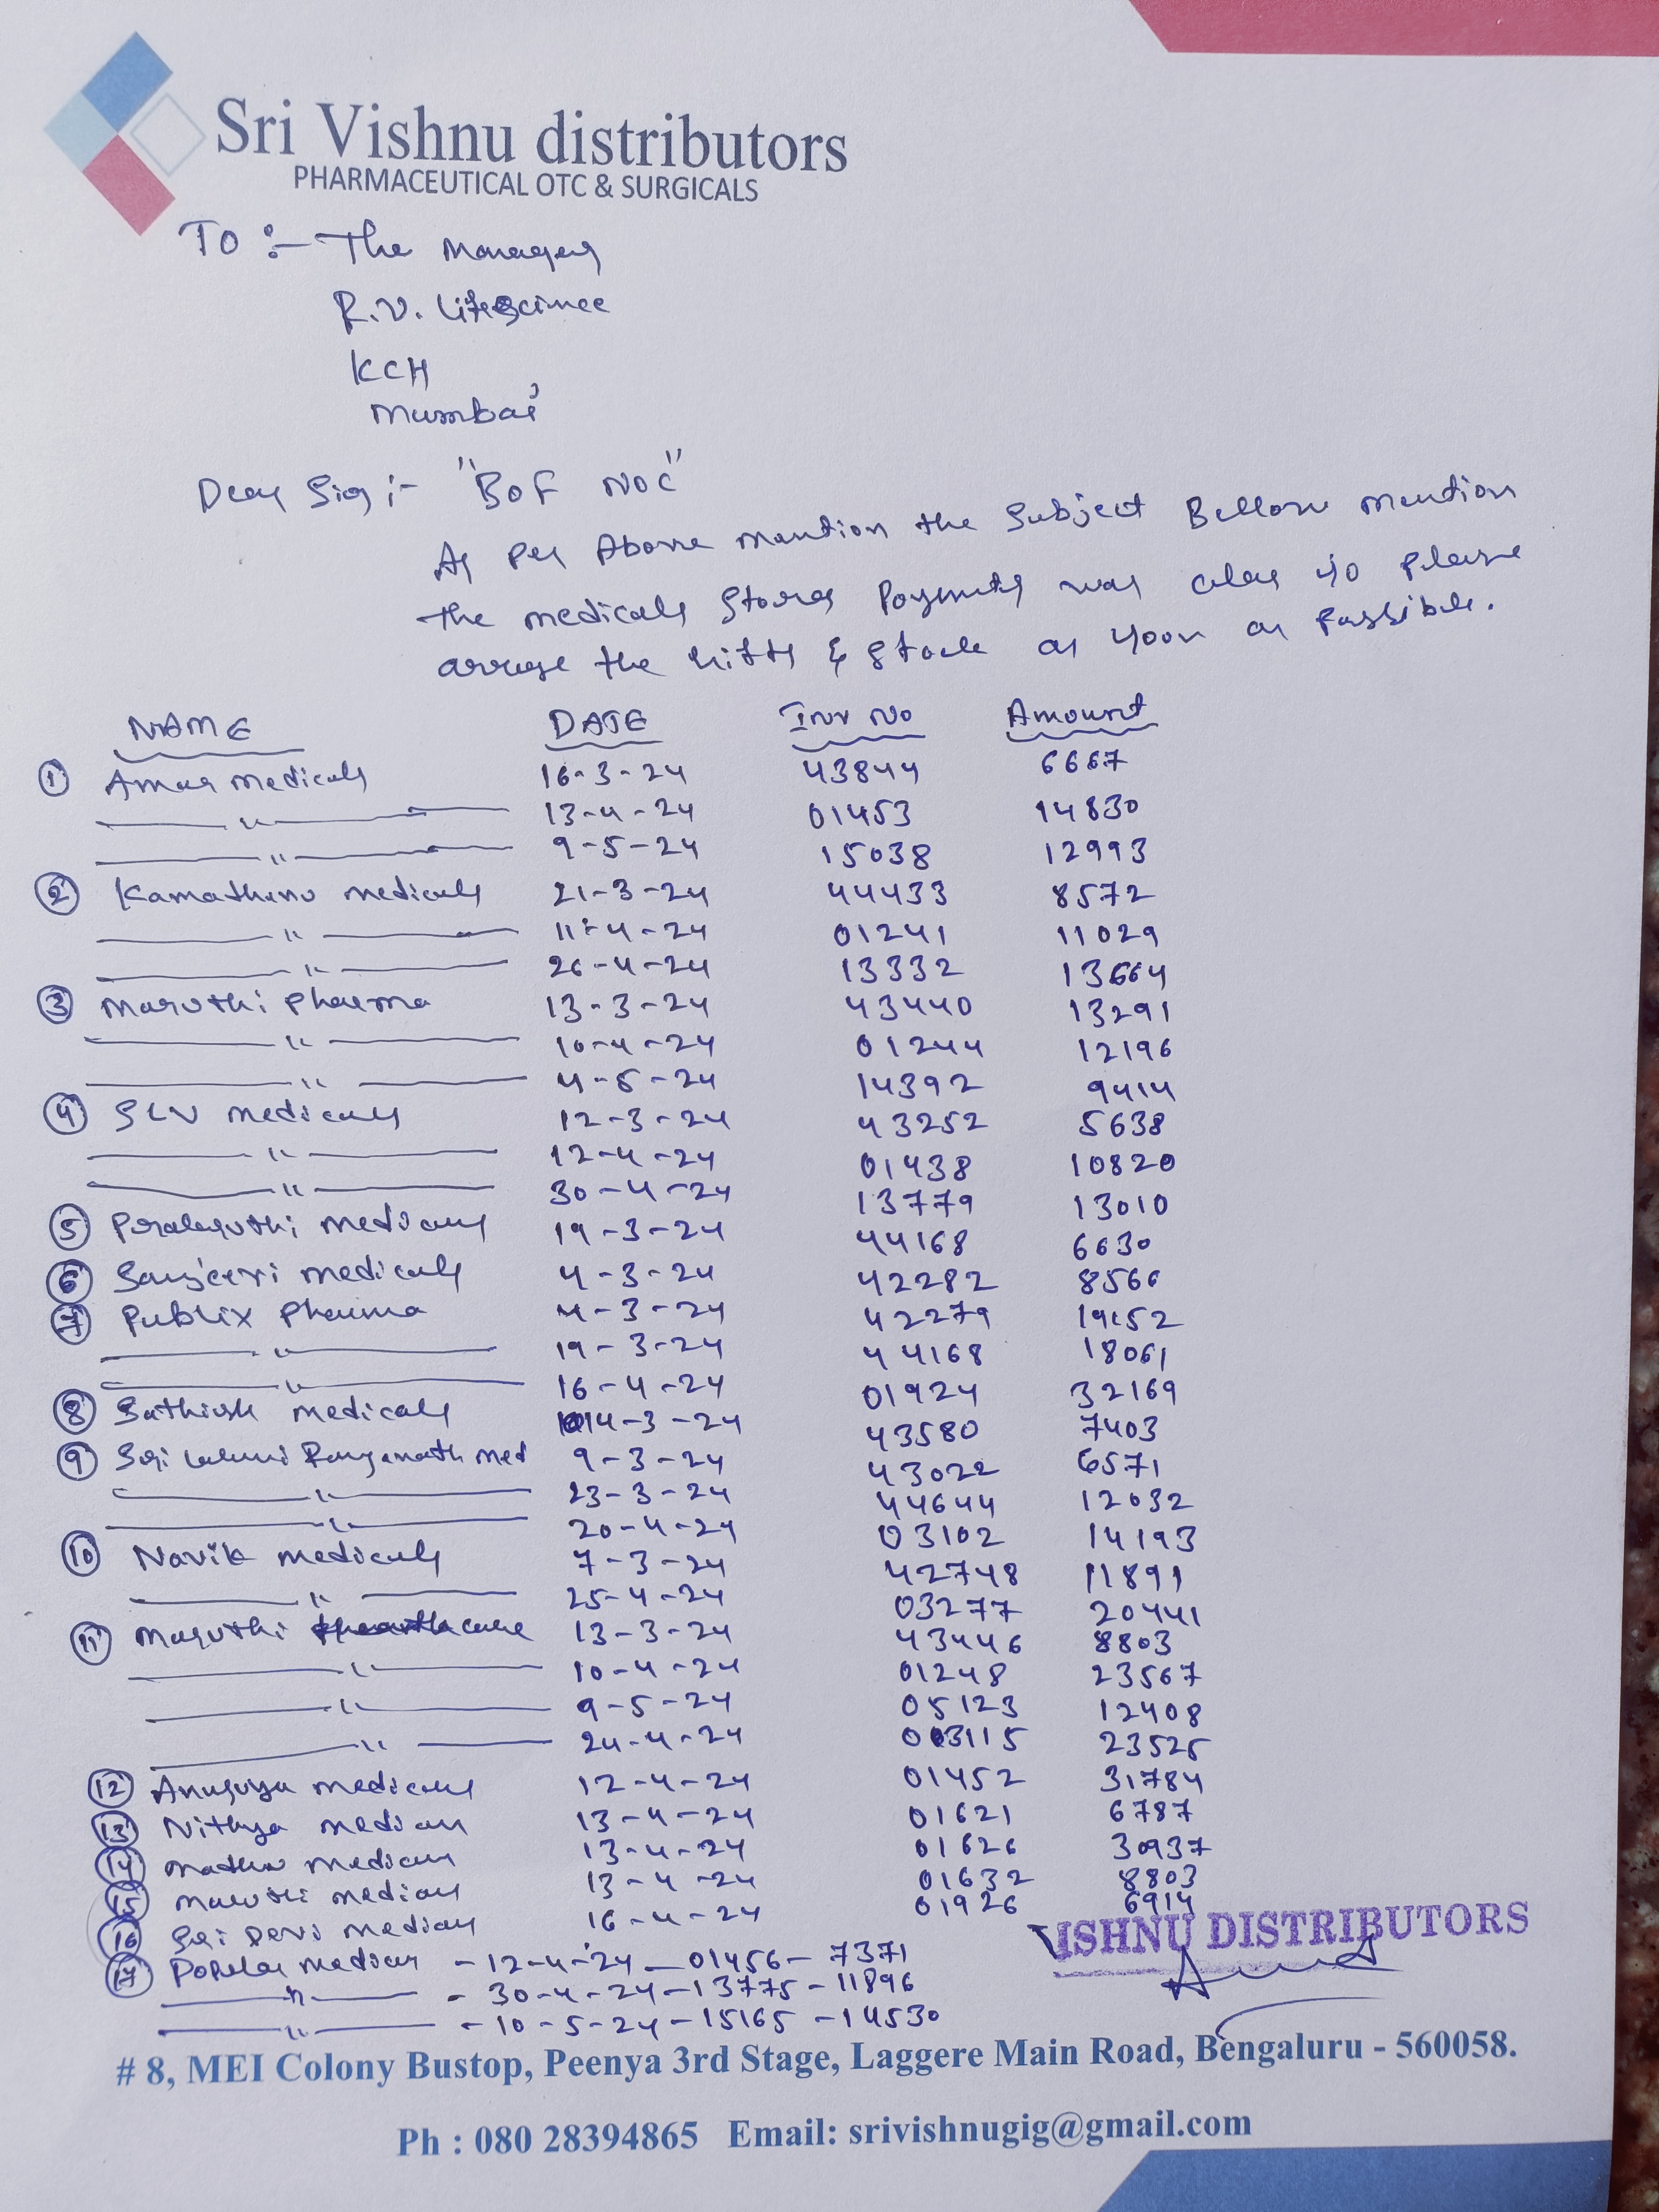 Sri Vishnu distributors
PHARMACEUTICAL OTC & SURGICALS
TO :- The Manager
R.V. Lifescince
KCH
Mumbai
Dear Sir :- "BOF NOC"
As Per Above mention the Subject Bellow mention
the medicals Stores Payments was clear so please
arrage the Gifts & Stock as soon as Possible.
NAME DATE Inv No Amount
① Amar medicals 16-3-24 43844 6667
—〃— 13-4-24 01453 14830
—〃— 9-5-24 15038 12993
② Kamathenu medicals 21-3-24 44433 8572
—〃— 11-4-24 01241 11029
—〃— 26-4-24 13332 13664
③ Maruthi Pharma 13-3-24 43440 13291
—〃— 10-4-24 01244 12196
—〃— 4-5-24 14392 9414
④ SLV medicals 12-3-24 43252 5638
—〃— 12-4-24 01438 10820
—〃— 30-4-24 13779 13010
⑤ medicals 19-3-24 44168 6630
⑥ Sanjeevi medicals 4-3-24 42282 8566
⑦ Publix Pharma 4-3-24 42279
—〃— 19-3-24 44168 18061
—〃— 16-4-24 01924 32169
⑧ Sathish medicals 14-3-24 43580 7403
⑨ Sri Laxmi Ranganath med 9-3-24 43022 6571
—〃— 23-3-24 44644 12032
—〃— 20-4-24 03102 14193
⑩ Navik medicals 7-3-24 42748 11891
—〃— 25-4-24 03277 20441
⑪ Maruthi care 13-3-24 43446 8803
—〃— 10-4-24 01248 23567
—〃— 9-5-24 05123 12408
—〃— 24-4-24 003115 23525
⑫ Anusuya medicals 12-4-24 01452 31784
⑬ Nithya medicals 13-4-24 01621 6787
⑭ Mathu medicals 13-4-24 01626 30937
⑮ Maruthi medicals 13-4-24 01632 8803
⑯ Sri Devi medicals 16-4-24 01926 6914
VISHNU DISTRIBUTORS
⑰ Popular medicals - 12-4-24 - 01456 - 7371
—〃— - 30-4-24 - 13775 - 11896
—〃— - 10-5-24 - 15165 - 14530
# 8, MEI Colony Bustop, Peenya 3rd Stage, Laggere Main Road, Bengaluru - 560058.
Ph : 080 28394865 Email: srivishnugig@gmail.com